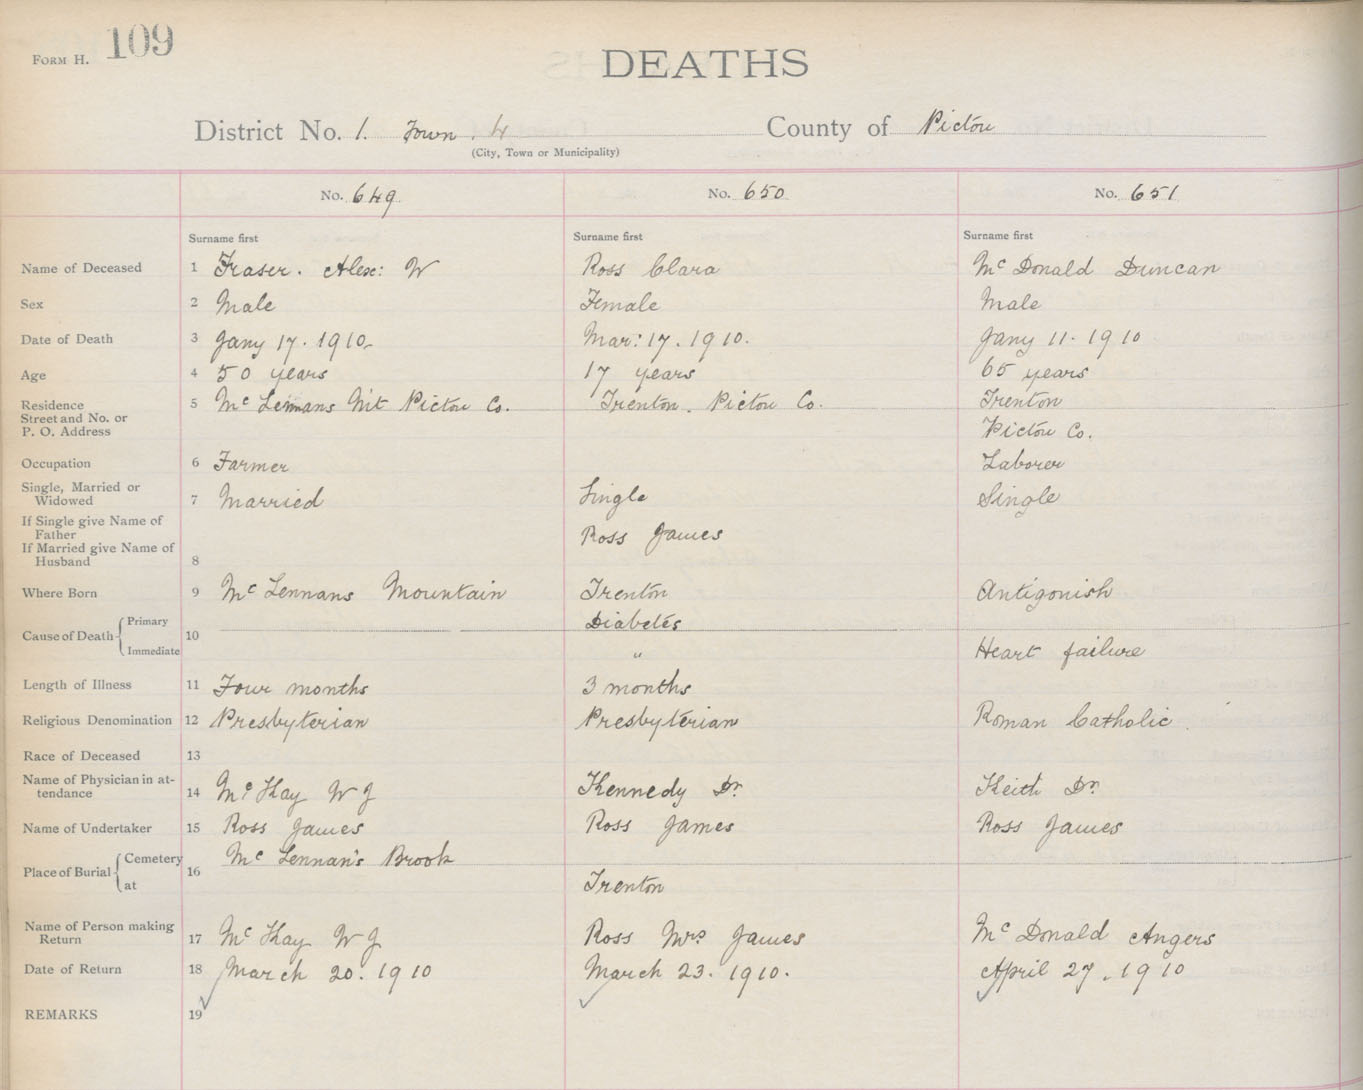 Form H. 109
DEATHS
District No. 1. Town. 4 County of Pictou
(City, Town or Municipality)
No. 649 No. 650 No. 651
Surname first Surname first Surname first
Name of Deceased 1 Fraser. Alex: W Ross Clara McDonald Duncan
Sex 2 Male Female Male
Date of Death 3 Jany 17. 1910 Mar: 17. 1910. Jany 11. 1910
Age 4 50 years 17 years 65 years
Residence 5 McLennans Mt Pictou Co. Trenton. Pictou Co. Trenton
Street and No. or
P. O. Address Pictou Co.
Occupation 6 Farmer Laborer
Single, Married or
Widowed 7 Married Single Single
If Single give Name of
Father Ross James
If Married give Name of
Husband 8
Where Born 9 McLennans Mountain Trenton Antigonish
Cause of Death Primary 10 Diabetes
Immediate " Heart failure
Length of Illness 11 Four months 3 months
Religious Denomination 12 Presbyterian Presbyterian Roman Catholic
Race of Deceased 13
Name of Physician in at-
tendance 14 McKay W J Kennedy Dr. Keith Dr.
Name of Undertaker 15 Ross James Ross James Ross James
Place of Burial Cemetery 16 McLennan's Brook
at Trenton
Name of Person making
Return 17 McKay W J Ross Mrs James McDonald Angers
Date of Return 18 March 20. 1910 March 23. 1910. April 27. 1910
REMARKS 19